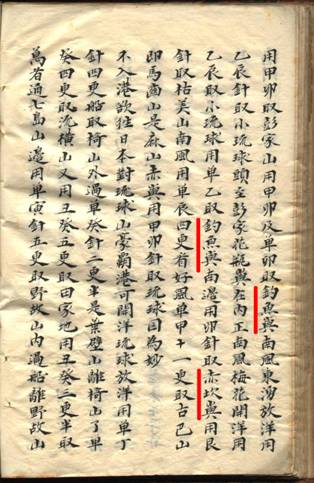 用甲卯取彭家山用甲卯及单卯取釣魚嶼南風東湧放洋用
乙辰針取小琉球頭至彭家花瓶嶼在内正南風梅花開洋用
乙辰取小琉球用单乙取釣魚嶼南邊用卯針取赤坎嶼用艮
針取枯美山南風用单辰四更看好風单甲十一更取古巴山
即馬齒山是麻山赤嶼用甲卯針取琉球國為妙
不入港欲往日本對琉球山豪霸港可開洋琉球放洋用单丁
針四更船取椅山外過单癸針二更半是葉壁山離椅山了单
癸四更取流横山又用丑癸五更取田家地用丑癸三更半取
萬者通七島山邊用单寅針五更取野故山内過船離野故山